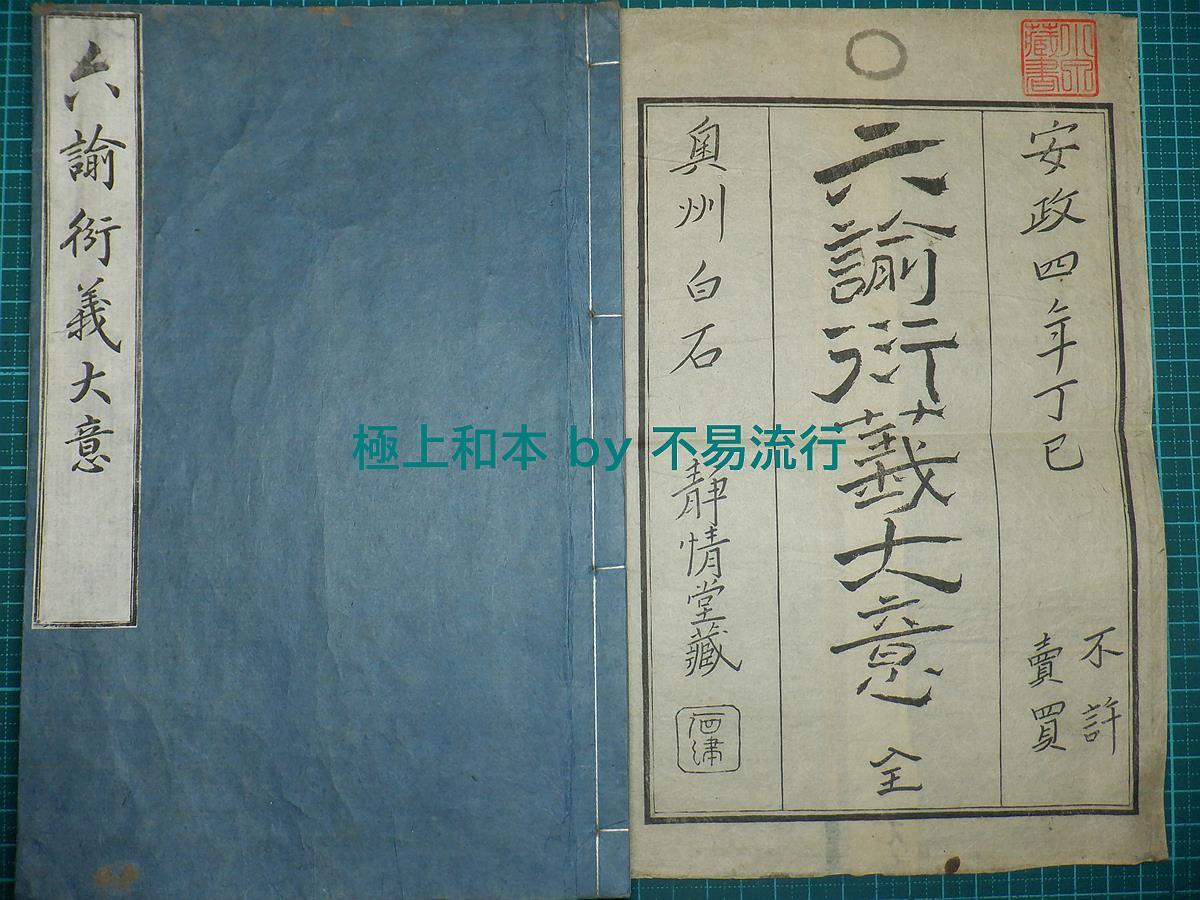 六諭衍義大意
安政四年丁巳
不許
賣買
六諭衍義大意 全
奥州白石 靜情堂藏
極上和本 by 不易流行